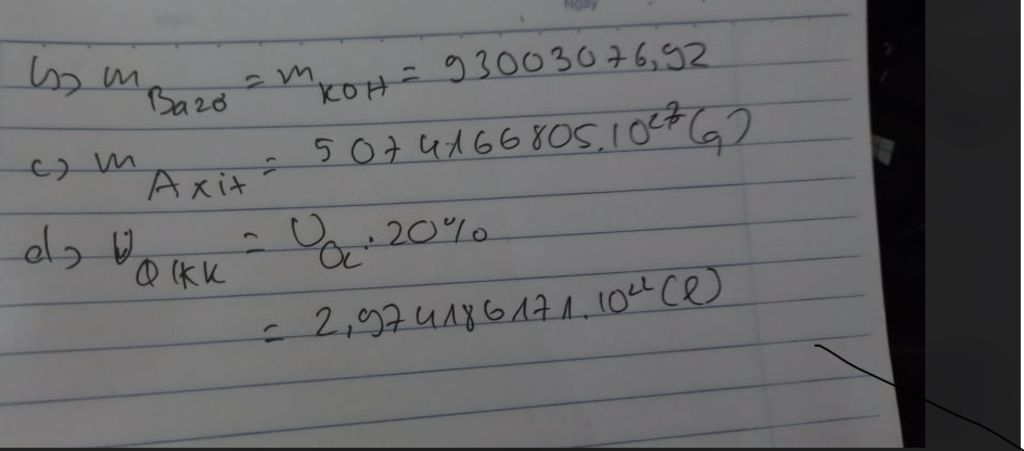 Ngày
b) m Bazơ = m KOH = 93003076,92
c) m Axit = 5074166805.10²⁷(g)
d) V Q KK = V O₂ . 20%
= 2,974186171.10²²(l)